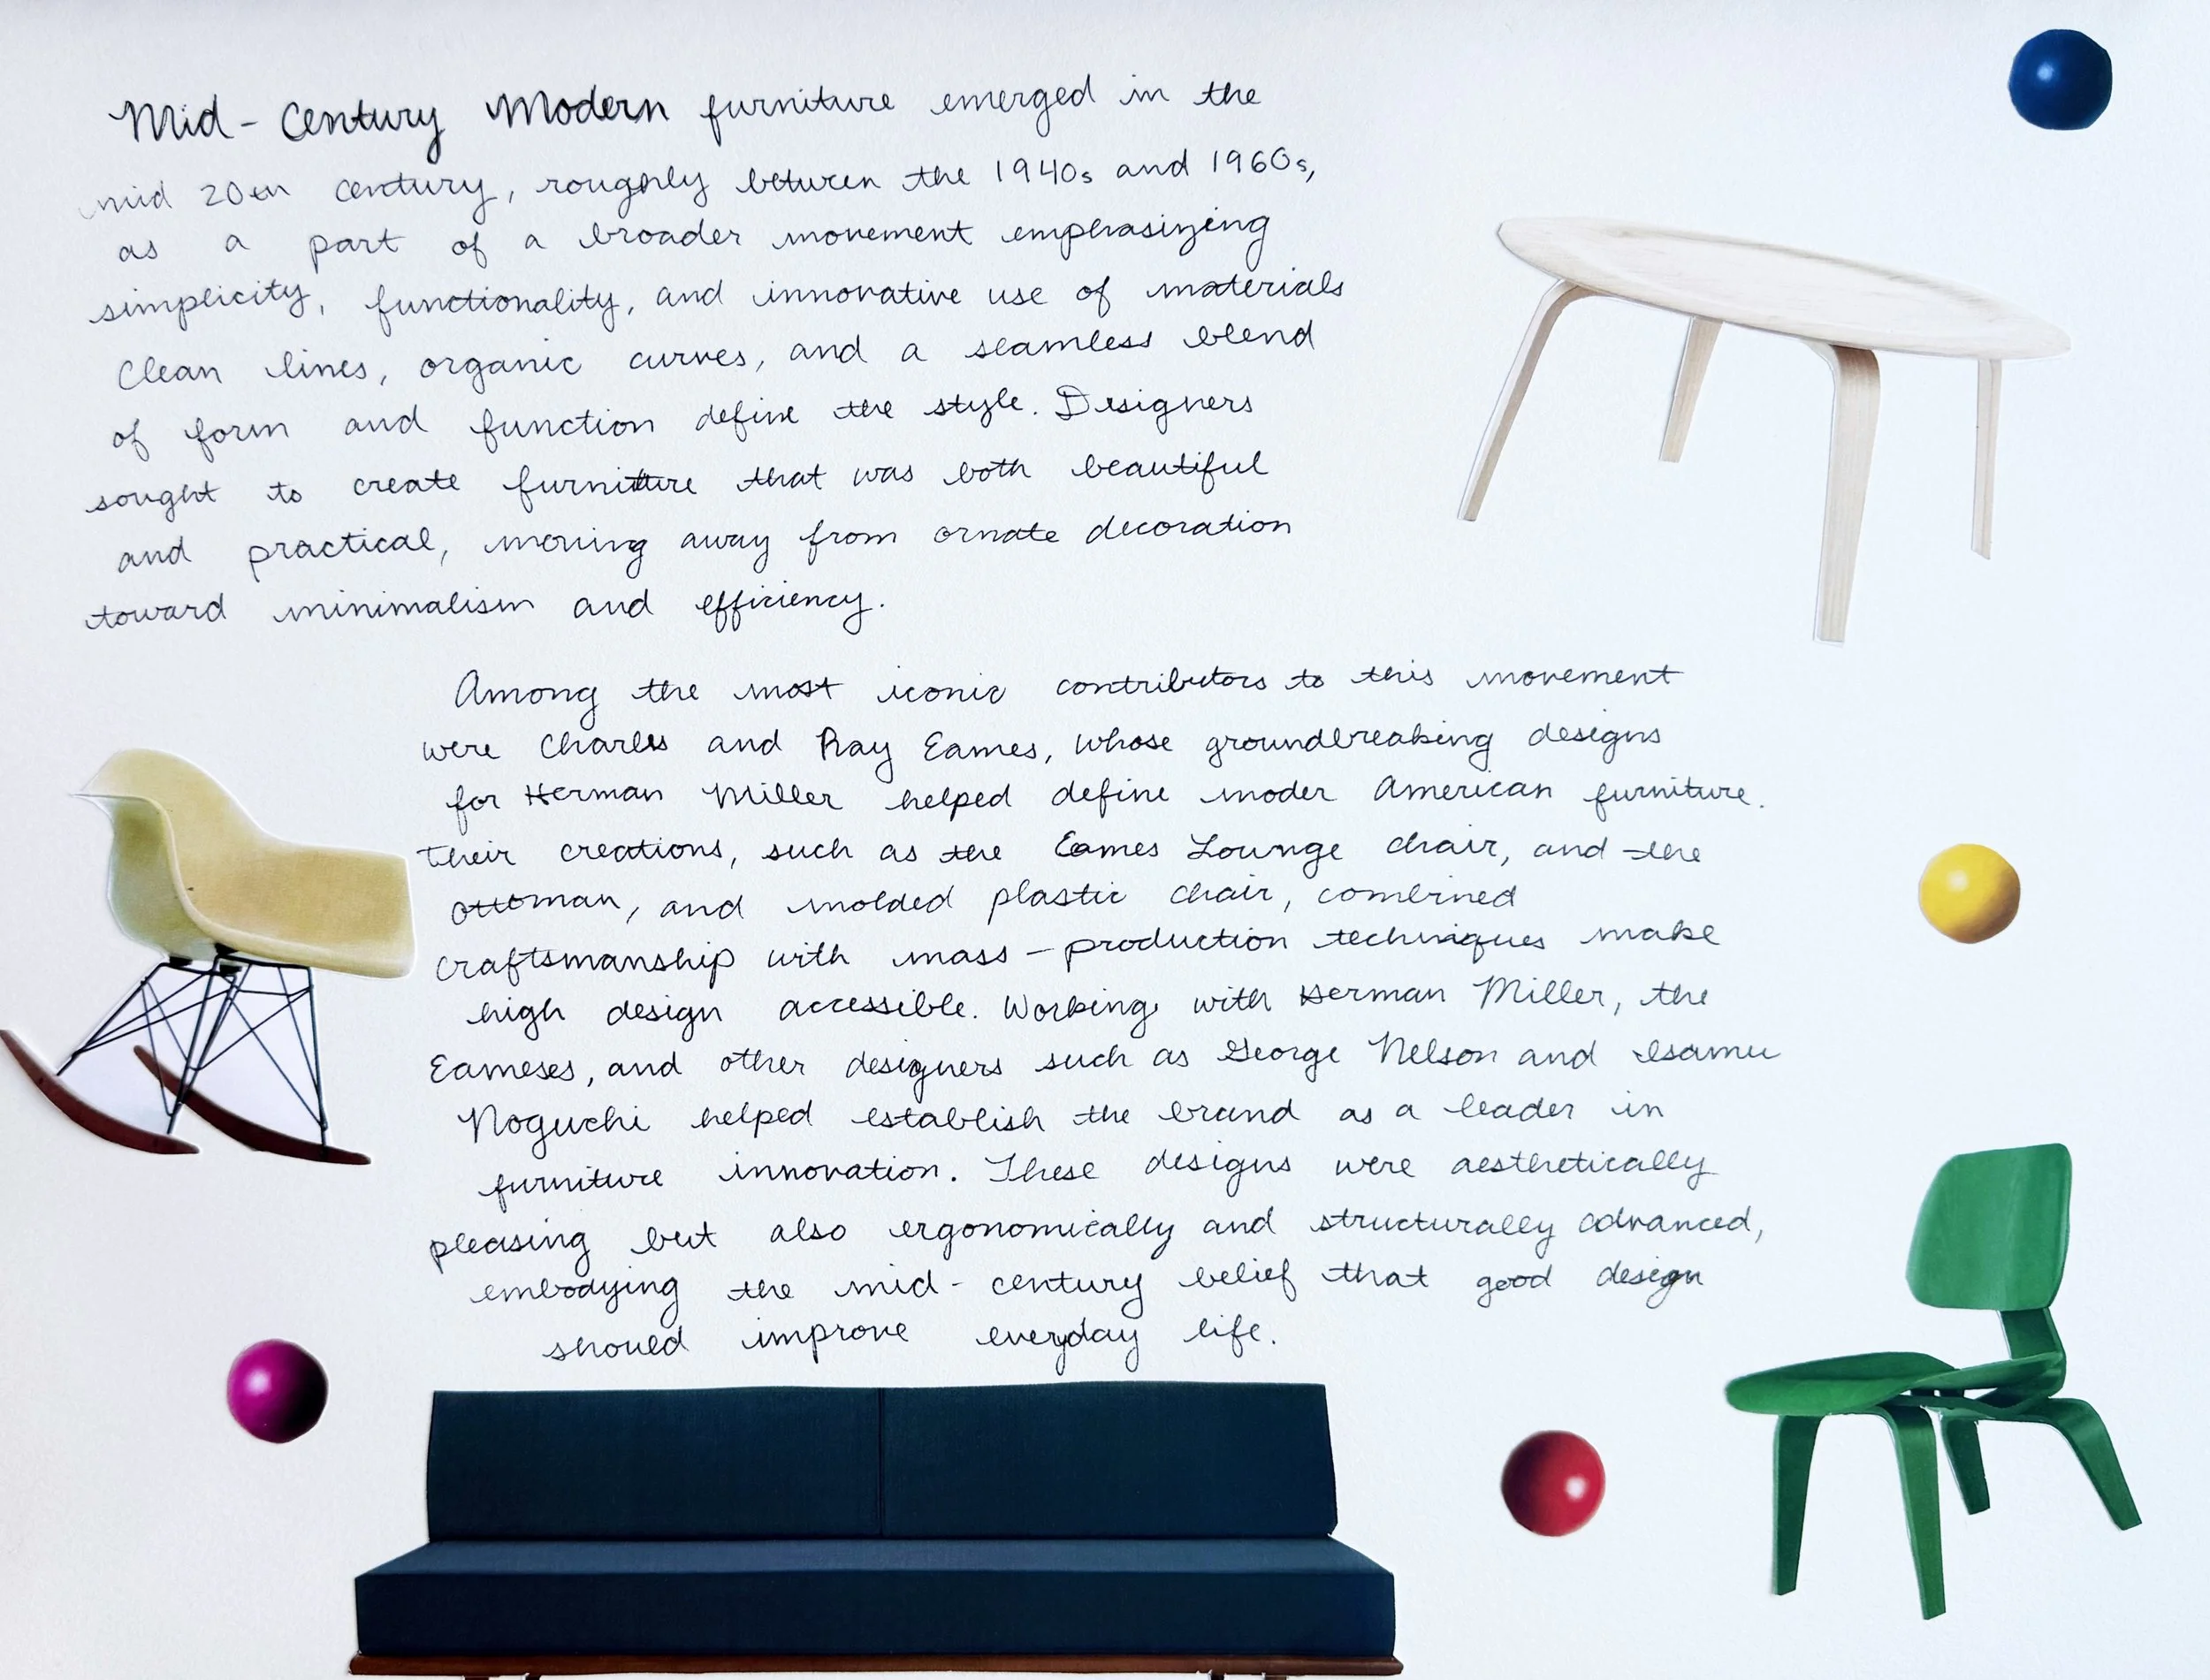 Mid-Century Modern furniture emerged in the
mid 20th century, roughly between the 1940s and 1960s,
as a part of a broader movement emphasizing
simplicity, functionality, and innovative use of materials
Clean lines, organic curves, and a seamless blend
of form and function define the style. Designers
sought to create furniture that was both beautiful
and practical, moving away from ornate decoration
toward minimalism and efficiency.
Among the most iconic contributors to this movement
were Charles and Ray Eames, whose groundbreaking designs
for Herman Miller helped define moder American furniture.
Their creations, such as the Eames Lounge chair, and the
ottoman, and molded plastic chair, combined
craftsmanship with mass-production techniques make
high design accessible. Working with Herman Miller, the
Eameses, and other designers such as George Nelson and Isamu
Noguchi helped establish the brand as a leader in
furniture innovation. These designs were aesthetically
pleasing but also ergonomically and structurally advanced,
embodying the mid-century belief that good design
should improve everyday life.